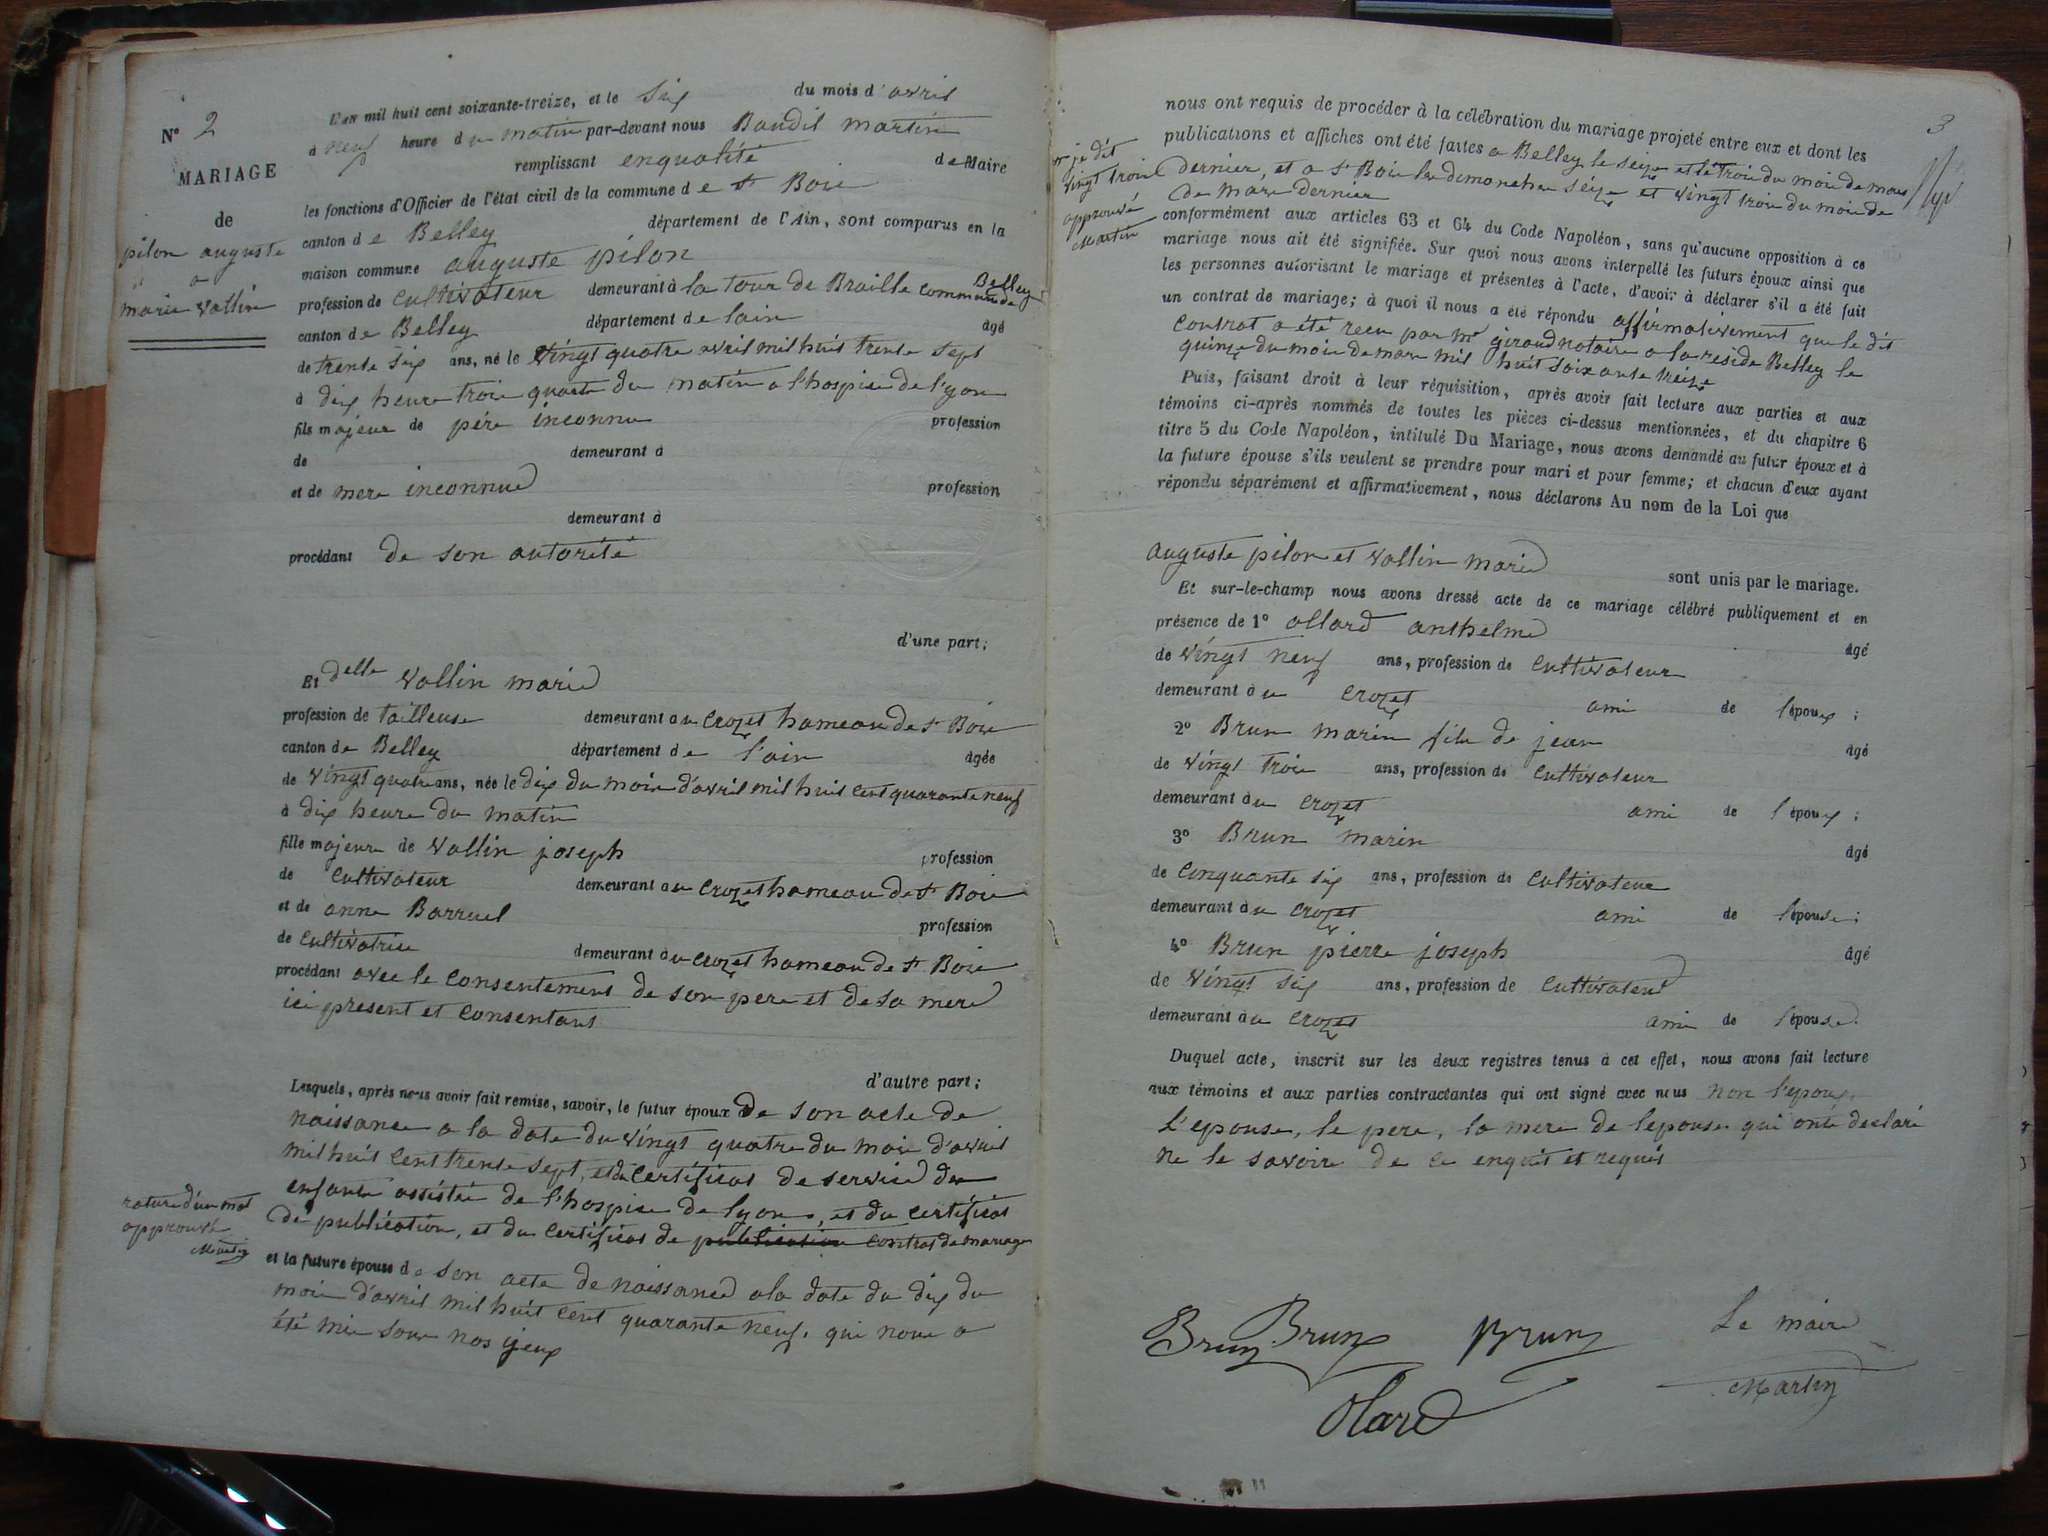 N° 2
MARIAGE
de
pilon auguste
a
marie vallin
L'an mil huit cent soixante-treize, et le six du mois d'avril
à neuf heure du matin par-devant nous Baudit martin
remplissant enqualité de Maire
les fonctions d'Officier de l'état civil de la commune de st Boie
canton de Belley département de l'Ain, sont comparus en la
maison commune auguste pilon
profession de cultivateur demeurant à la tour de Braille commune de Belley
canton de Belley département de lain âgé
de trente six ans, né le vingt quatre avril mil huit trente sept
à dix heure trois quarts du matin a lhospice de lyon
fils majeur de père inconnu profession
de demeurant à
et de mere inconnue profession
demeurant à
procédant de son autorité
d'une part;
Et delle vallin marie
profession de tailleuse demeurant au crozet hameau de st Boie
canton de Belley département de l'ain âgée
de vingt quatre ans, née le dix du mois d'avril mil huit cent quarante neuf
à dix heure du matin
fille majeure de vallin joseph profession
de cultivateur demeurant au crozet hameau de st Boie
et de anne Barruel profession
de cultivatrice demeurant au crozet hameau de st Boie
procédant avec le consentement de son pere et de sa mere
ici present et consentant
d'autre part;
Lesquels, après nous avoir fait remise, savoir, le futur époux de son acte de
naissance a la date du vingt quatre du mois d'avril
mil huit cent trente sept, et du certificat de service des
enfants assistés de l'hospice de lyon, et du certificat
de publication, et du certificat de publication contrat de mariage
rature d'un mot
approuvé
Martin
et la future épouse de son acte de naissance a la date du dix du
mois d'avril mil huit cent quarante neuf. qui nous a
été mis sous nos yeux
3
nous ont requis de procéder à la célébration du mariage projeté entre eux et dont les
publications et affiches ont été faites a Belley le seize et le trois du mois de mars
dernier, et a st Boie les dimanches seize et vingt trois du mois de
de mars dernier
je dit
vingt trois
approuvé
Martin
conformément aux articles 63 et 64 du Code Napoléon, sans qu'aucune opposition à ce
mariage nous ait été signifiée. Sur quoi nous avons interpellé les futurs époux ainsi que
les personnes autorisant le mariage et présentes à l'acte, d'avoir à déclarer s'il a été fait
un contrat de mariage; à quoi il nous a été répondu affirmativement que le dit
contrat a été recu par mr giroud notaire a la reside Belley le
quinze du mois de mars mil huit soixante treize
Puis, faisant droit à leur réquisition, après avoir fait lecture aux parties et aux
témoins ci-après nommés de toutes les pièces ci-dessus mentionnées, et du chapitre 6
titre 5 du Code Napoléon, intitulé Du Mariage, nous avons demandé au futur époux et à
la future épouse s'ils veulent se prendre pour mari et pour femme; et chacun d'eux ayant
répondu séparément et affirmativement, nous déclarons Au nom de la Loi que
auguste pilon et vallin marie
sont unis par le mariage.
Et sur-le-champ nous avons dressé acte de ce mariage célébré publiquement et en
présence de 1° allard anthelme âgé
de vingt neuf ans, profession de cultivateur
demeurant au crozet ami de l'époux;
2° Brun marin fils de jean âgé
de vingt trois ans, profession de cultivateur
demeurant au crozet ami de l'époux;
3° Brun marin âgé
de cinquante six ans, profession de cultivateur
demeurant au crozet ami de l'épouse;
4° Brun pierre joseph âgé
de vingt six ans, profession de cultivateur
demeurant au crozet ami de l'épouse.
Duquel acte, inscrit sur les deux registres tenus à cet effet, nous avons fait lecture
aux témoins et aux parties contractantes qui ont signé avec nous non l'epoux
L'epouse, le pere, la mere de lepouse qui onté declaré
ne le savoire de ce enquit et requis
Brun Brun Brun Le maire
Olard Martin